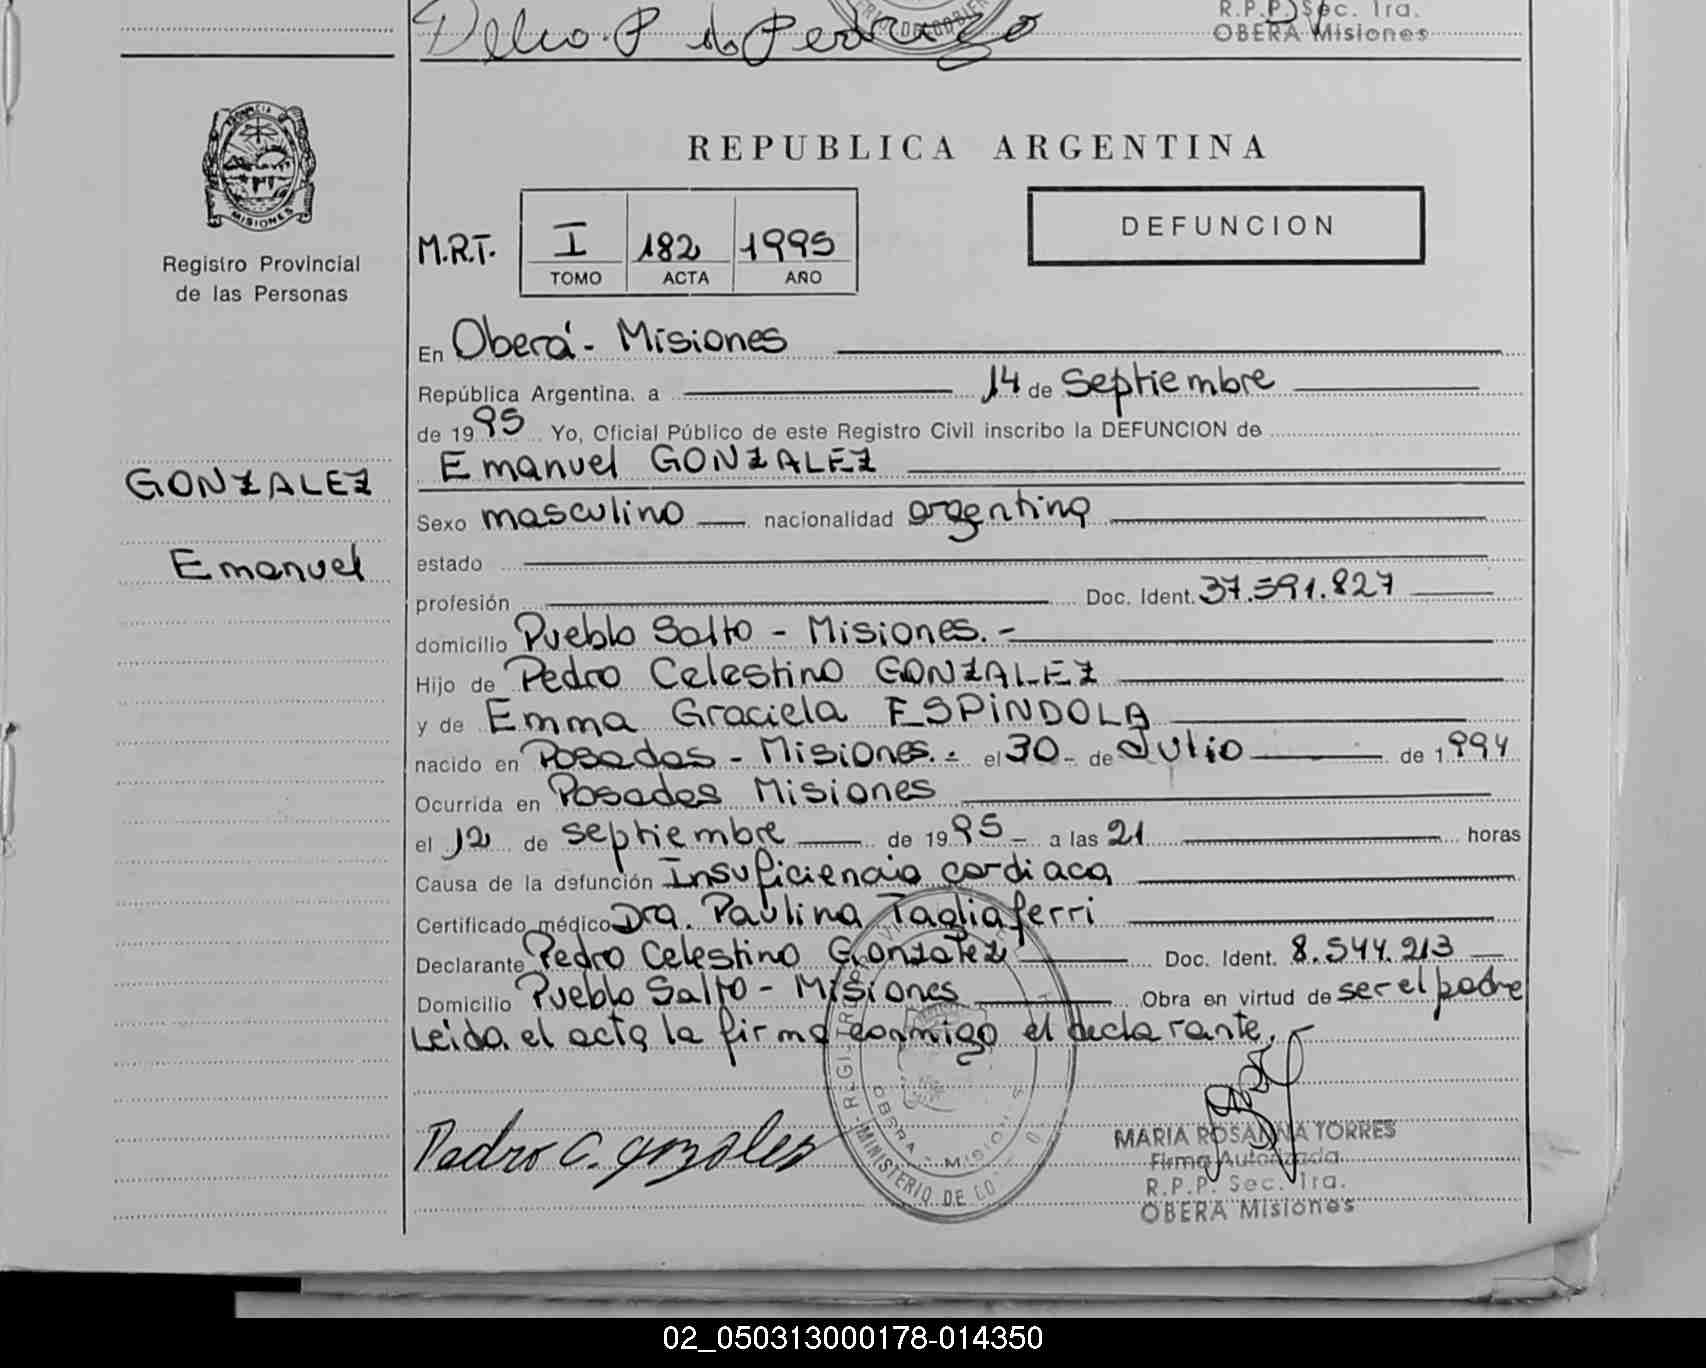 R.P.P. Sec. 1ra.
OBERA Misiones
PROVINCIA
MISIONES
Registro Provincial
de las Personas
GONZALEZ
Emanuel
REPUBLICA ARGENTINA
M.R.T. I 182 1995
TOMO ACTA AÑO
DEFUNCION
En Oberá - Misiones
República Argentina, a 14 de Septiembre
de 1995 Yo, Oficial Público de este Registro Civil inscribo la DEFUNCION de
Emanuel GONZALEZ
Sexo masculino nacionalidad argentina
estado
profesión Doc. Ident. 37.591.827
domicilio Pueblo Salto - Misiones. -
Hijo de Pedro Celestino GONZALEZ
y de Emma Graciela ESPINDOLA
nacido en Posadas - Misiones. - el 30 - de Julio de 1994
Ocurrida en Posadas Misiones
el 12 de septiembre de 1995 - a las 21 horas
Causa de la defunción Insuficiencia cardiaca
Certificado médico Dra. Paulina Tagliaferri
Declarante Pedro Celestino Gonzalez Doc. Ident. 8.544.213
Domicilio Pueblo Salto - Misiones Obra en virtud de ser el padre
Leida el acta la firma conmigo el declarante.
Pedro C. gonzales
MINISTERIO DE
OBERA - MISIONES
MARIA ROSANNA TORRES
Firma Autorizada
R.P.P. Sec. 1ra.
OBERA Misiones
02_050313000178-014350